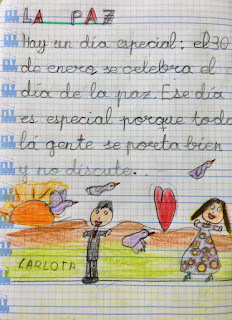 LA PAZ
Hay un día especial: el 30
de enero, se celebra el
día de la paz. Ese día
es especial porque toda
lá gente se porta bien
y no discute..
CARLOTA